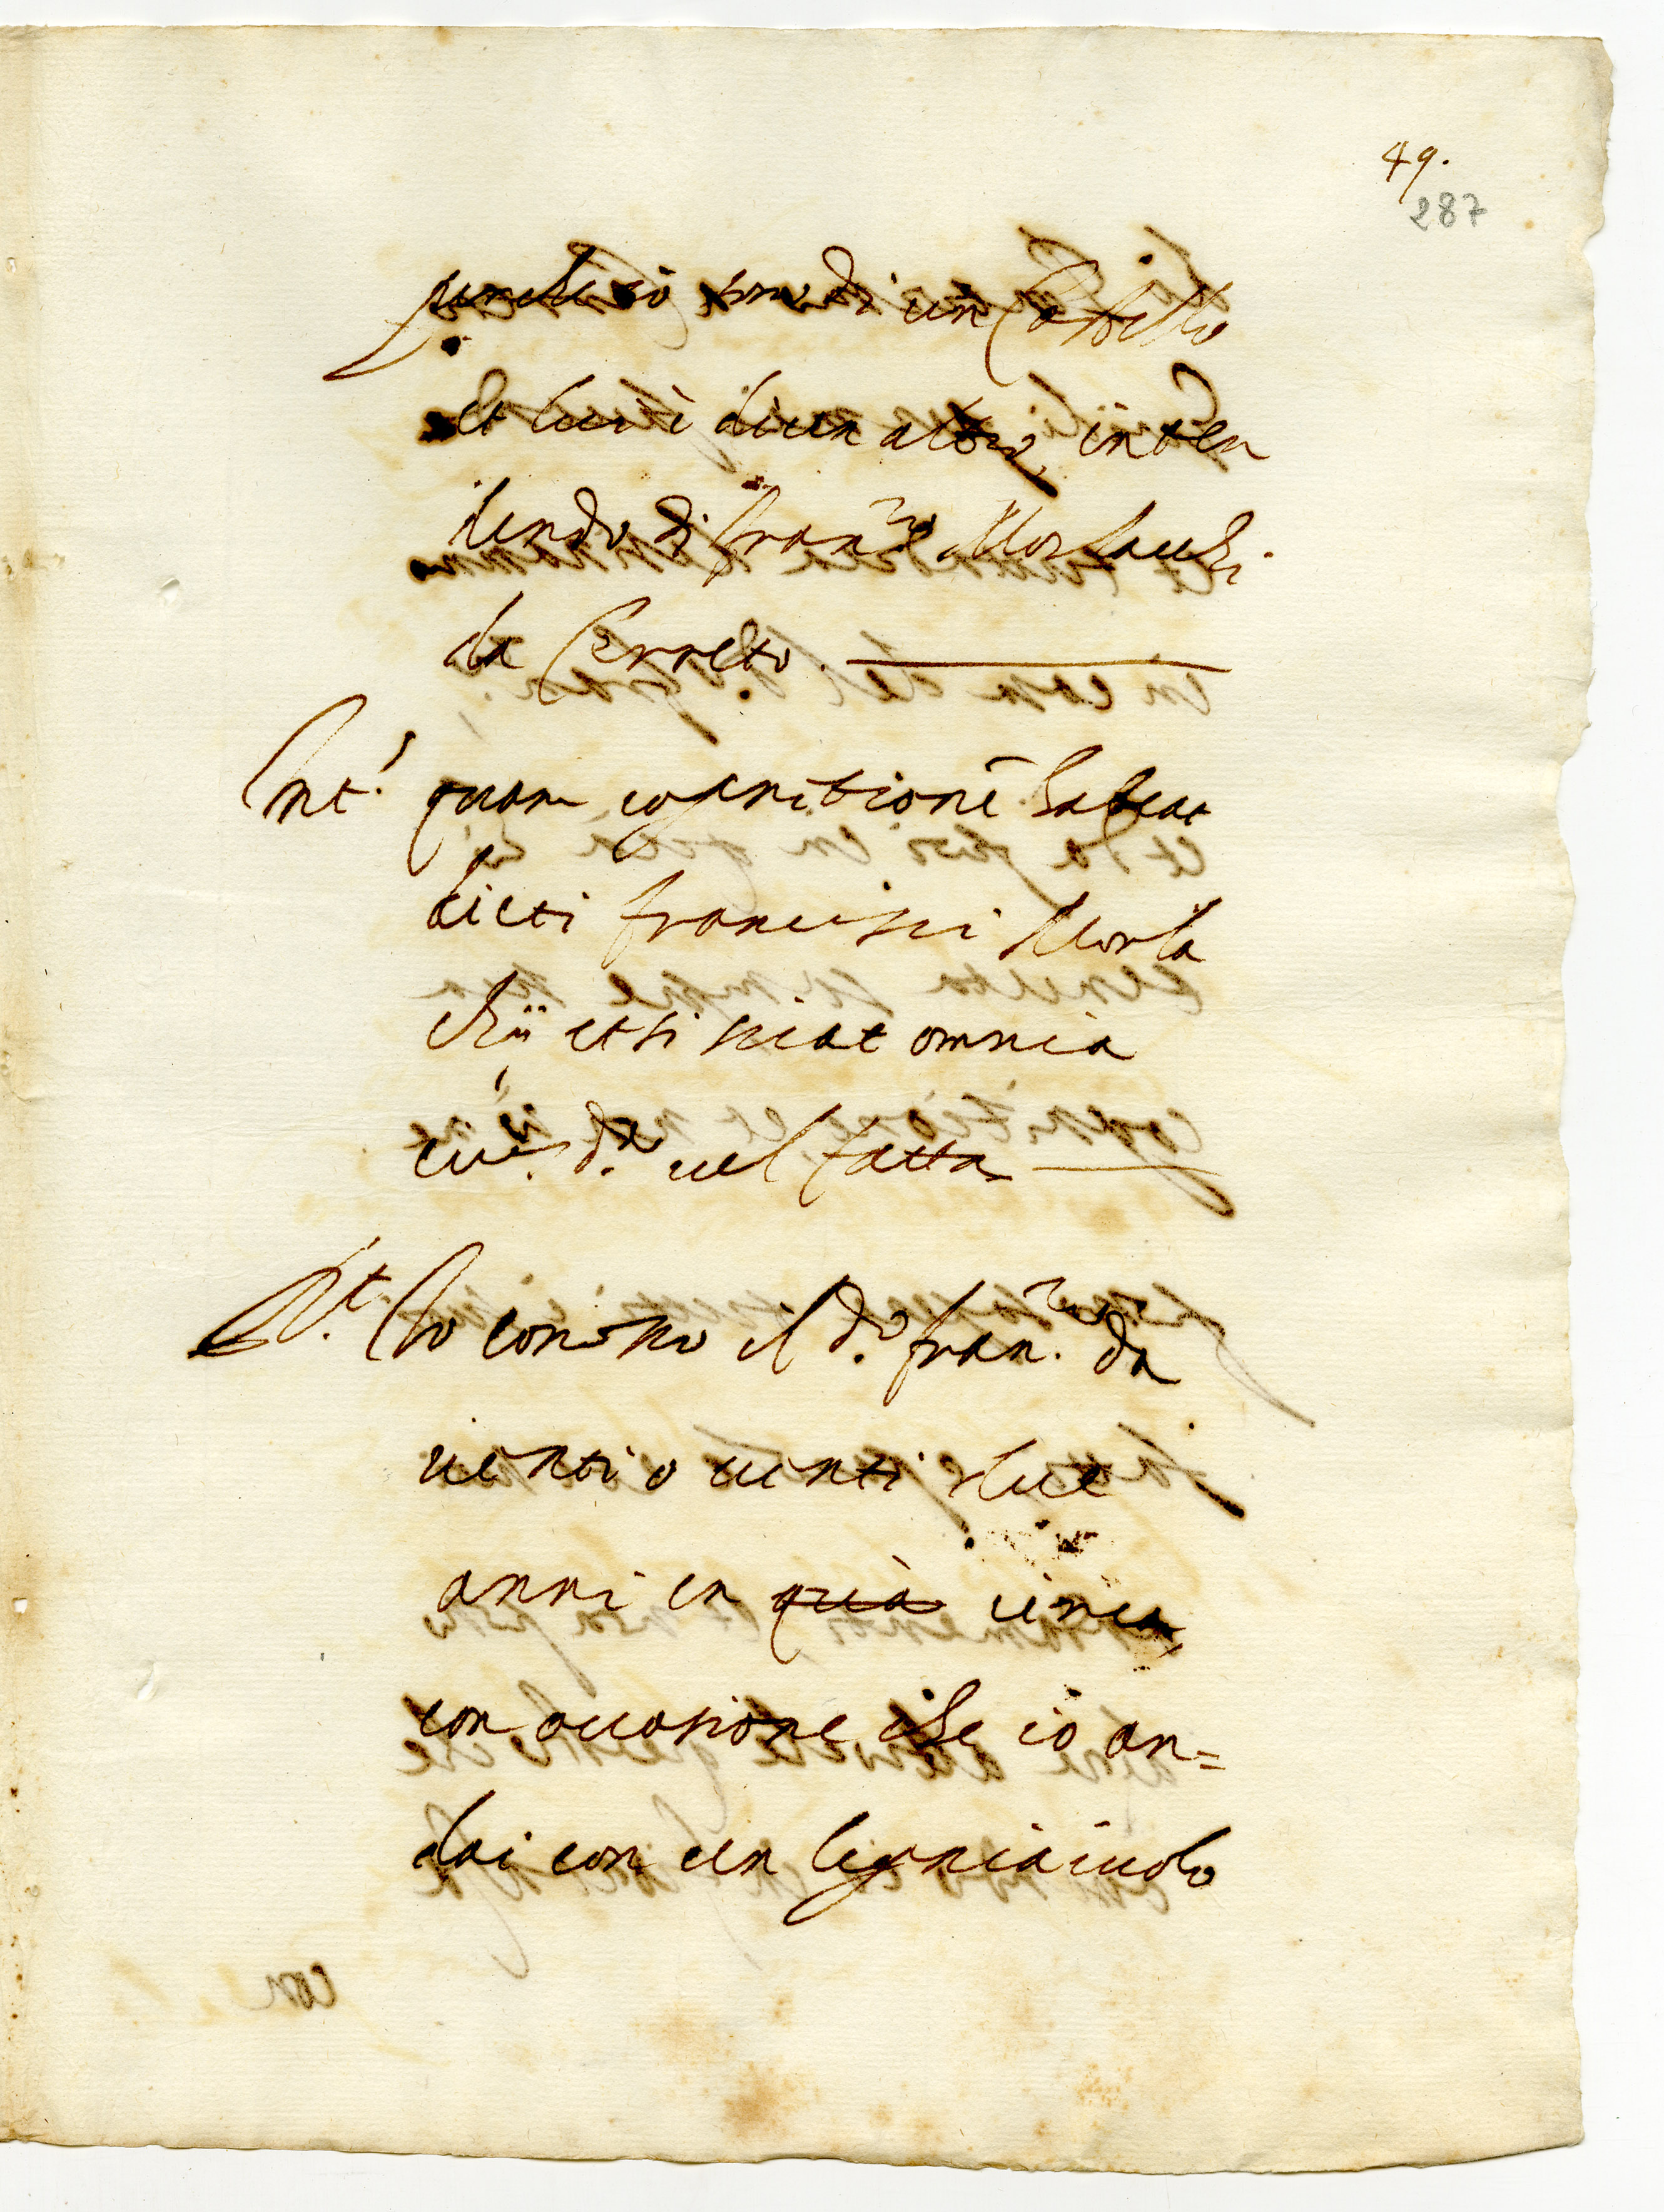 49.
287
perche io sono di un Castello
et lui è di un altro, inten
dendo di Fran.co Morlacchi
da Cerreto.
Int.s quam cognitionē habeat
dicti Francisci Morla
chii et si sciat omnia
eius d.a vel facta
R.t Io conosco il d.o Fran.co da
venti o venti due
anni in quà circa,
con occasione che io an=
dai con un legniaiuolo